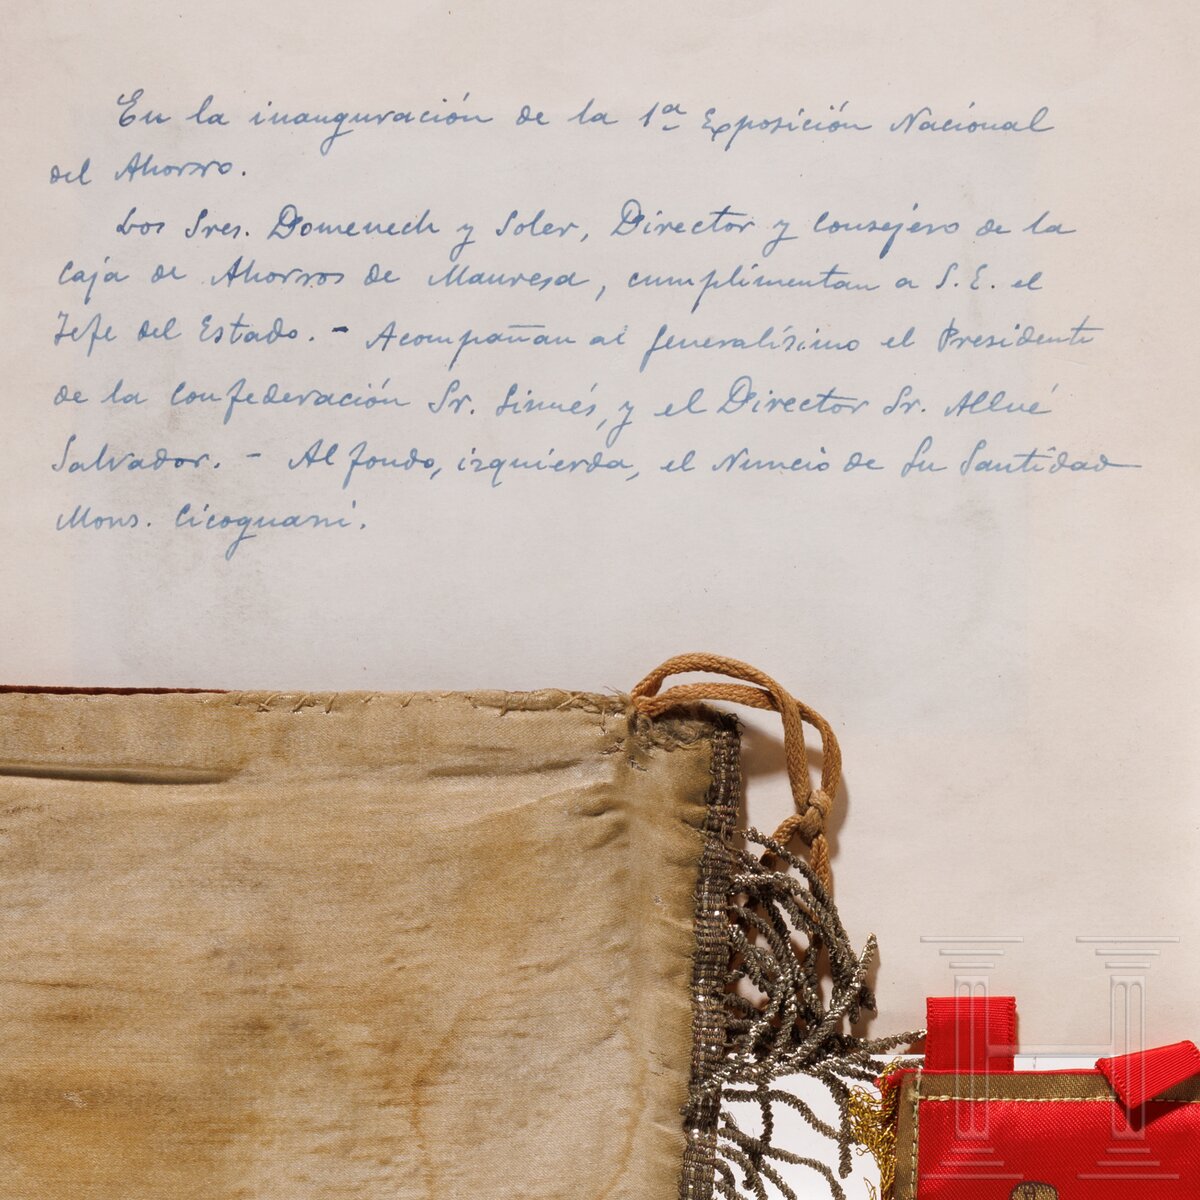 En la inauguración de la 1ª Exposición Nacional
del Ahorro.
Los Sres. Domenech y Soler, Director y Consejero de la
Caja de Ahorros de Manresa, cumplimentan a S.E. el
Jefe del Estado. - Acompañan al Generalísimo el Presidente
de la Confederación Sr. Sinués, y el Director Sr. Allué
Salvador. - Al fondo, izquierda, el Nuncio de Su Santidad
Mons. Cicognani.